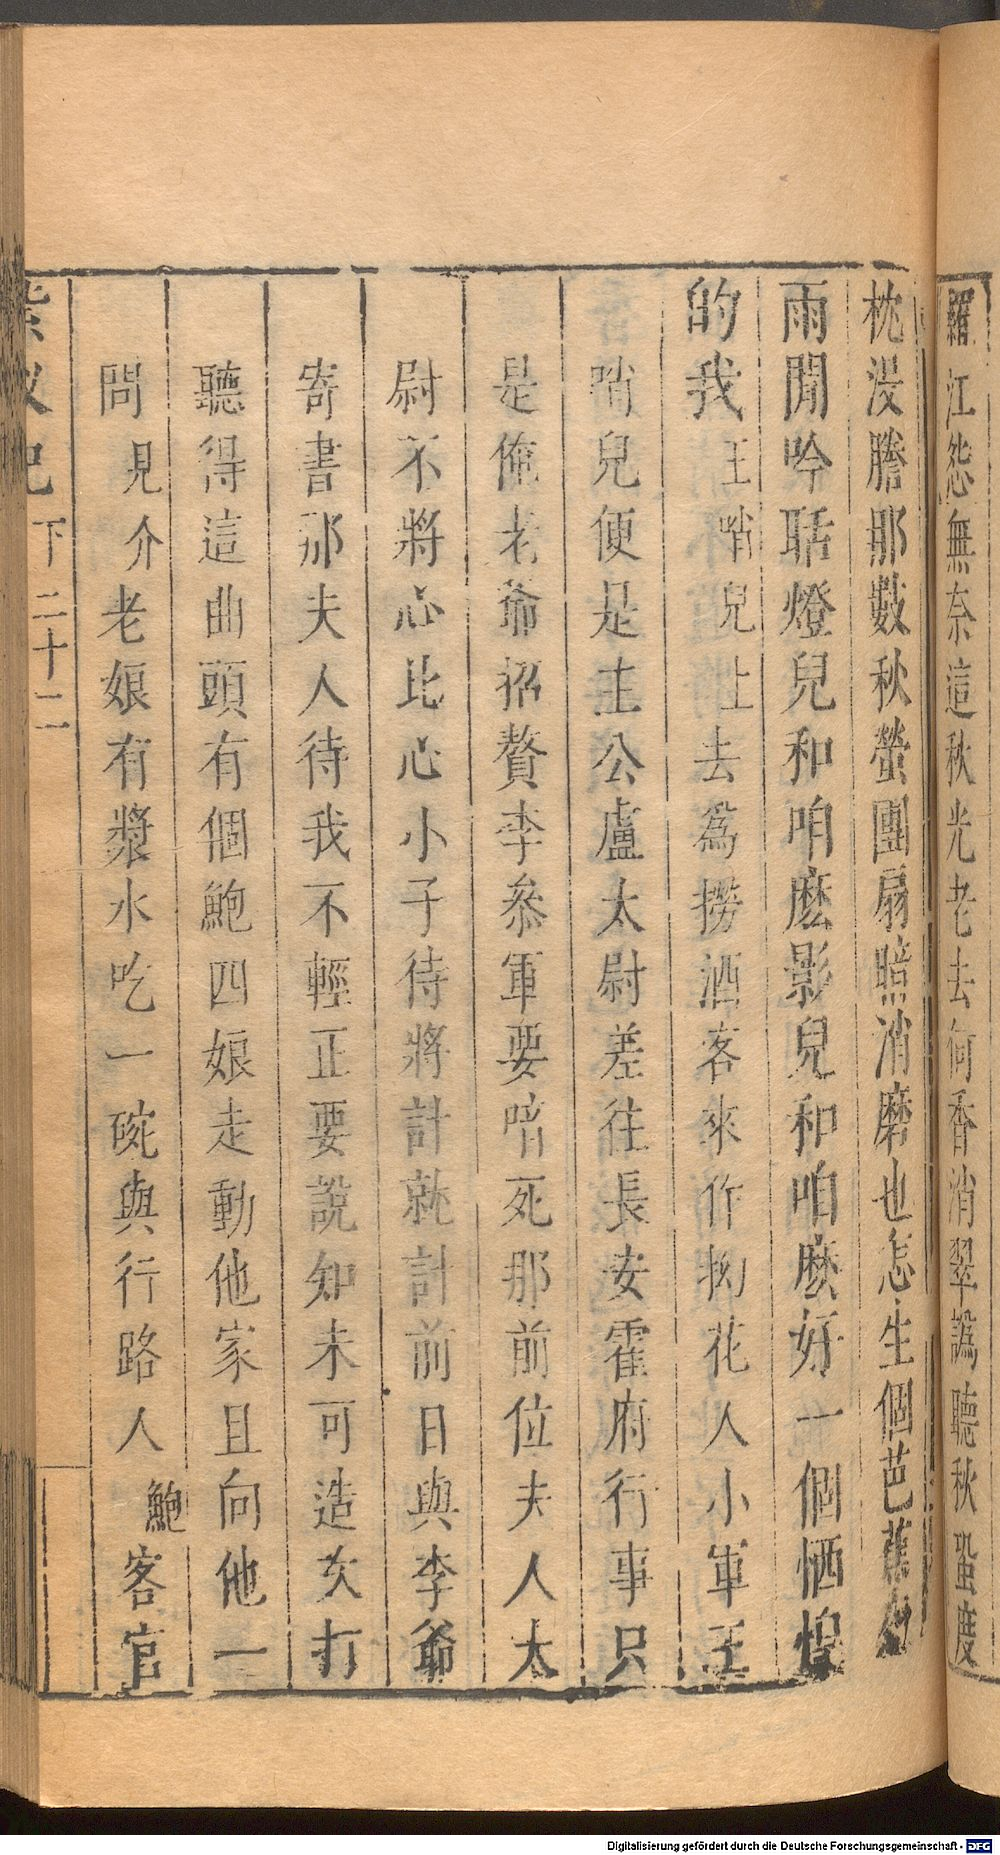 羅江怨無奈這秋光老去何香消翠譌聽秋蛩度
枕浸謄那數秋螢團扇暗消磨也怎生個芭蕉
雨閒吟聒燈兒和咱麽影兒和咱麽好一個恓惶
的我王哨兒上去爲撈酒客來作拗花人小軍王
哨兒便是主公盧太尉差往長安霍府行事只
是俺老爺招贅李叅軍要唶死那前位夫人太
尉不將心比心小子待將計就計前日與李爺
寄書那夫人待我不輕正要說知未可造次打
聽得這曲頭有個鮑四娘走動他家且向他一
問見介老娘有漿水吃一碗與行路人鮑客官
紫釵記 下 二十二
Digitalisierung gefördert durch die Deutsche Forschungsgemeinschaft - DFG